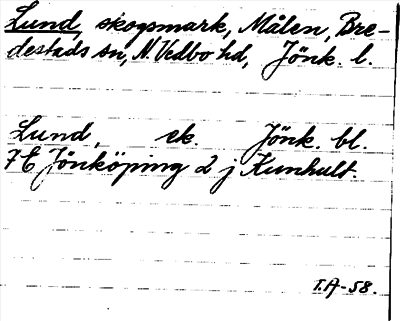 Lund, skogsmark, Målen, Bre-
destads sn, N. Vedbo hd, Jönk. l.
Lund, ek. Jönk. bl.
7E Jönköping 2 j Kunhult.
T.A-58.